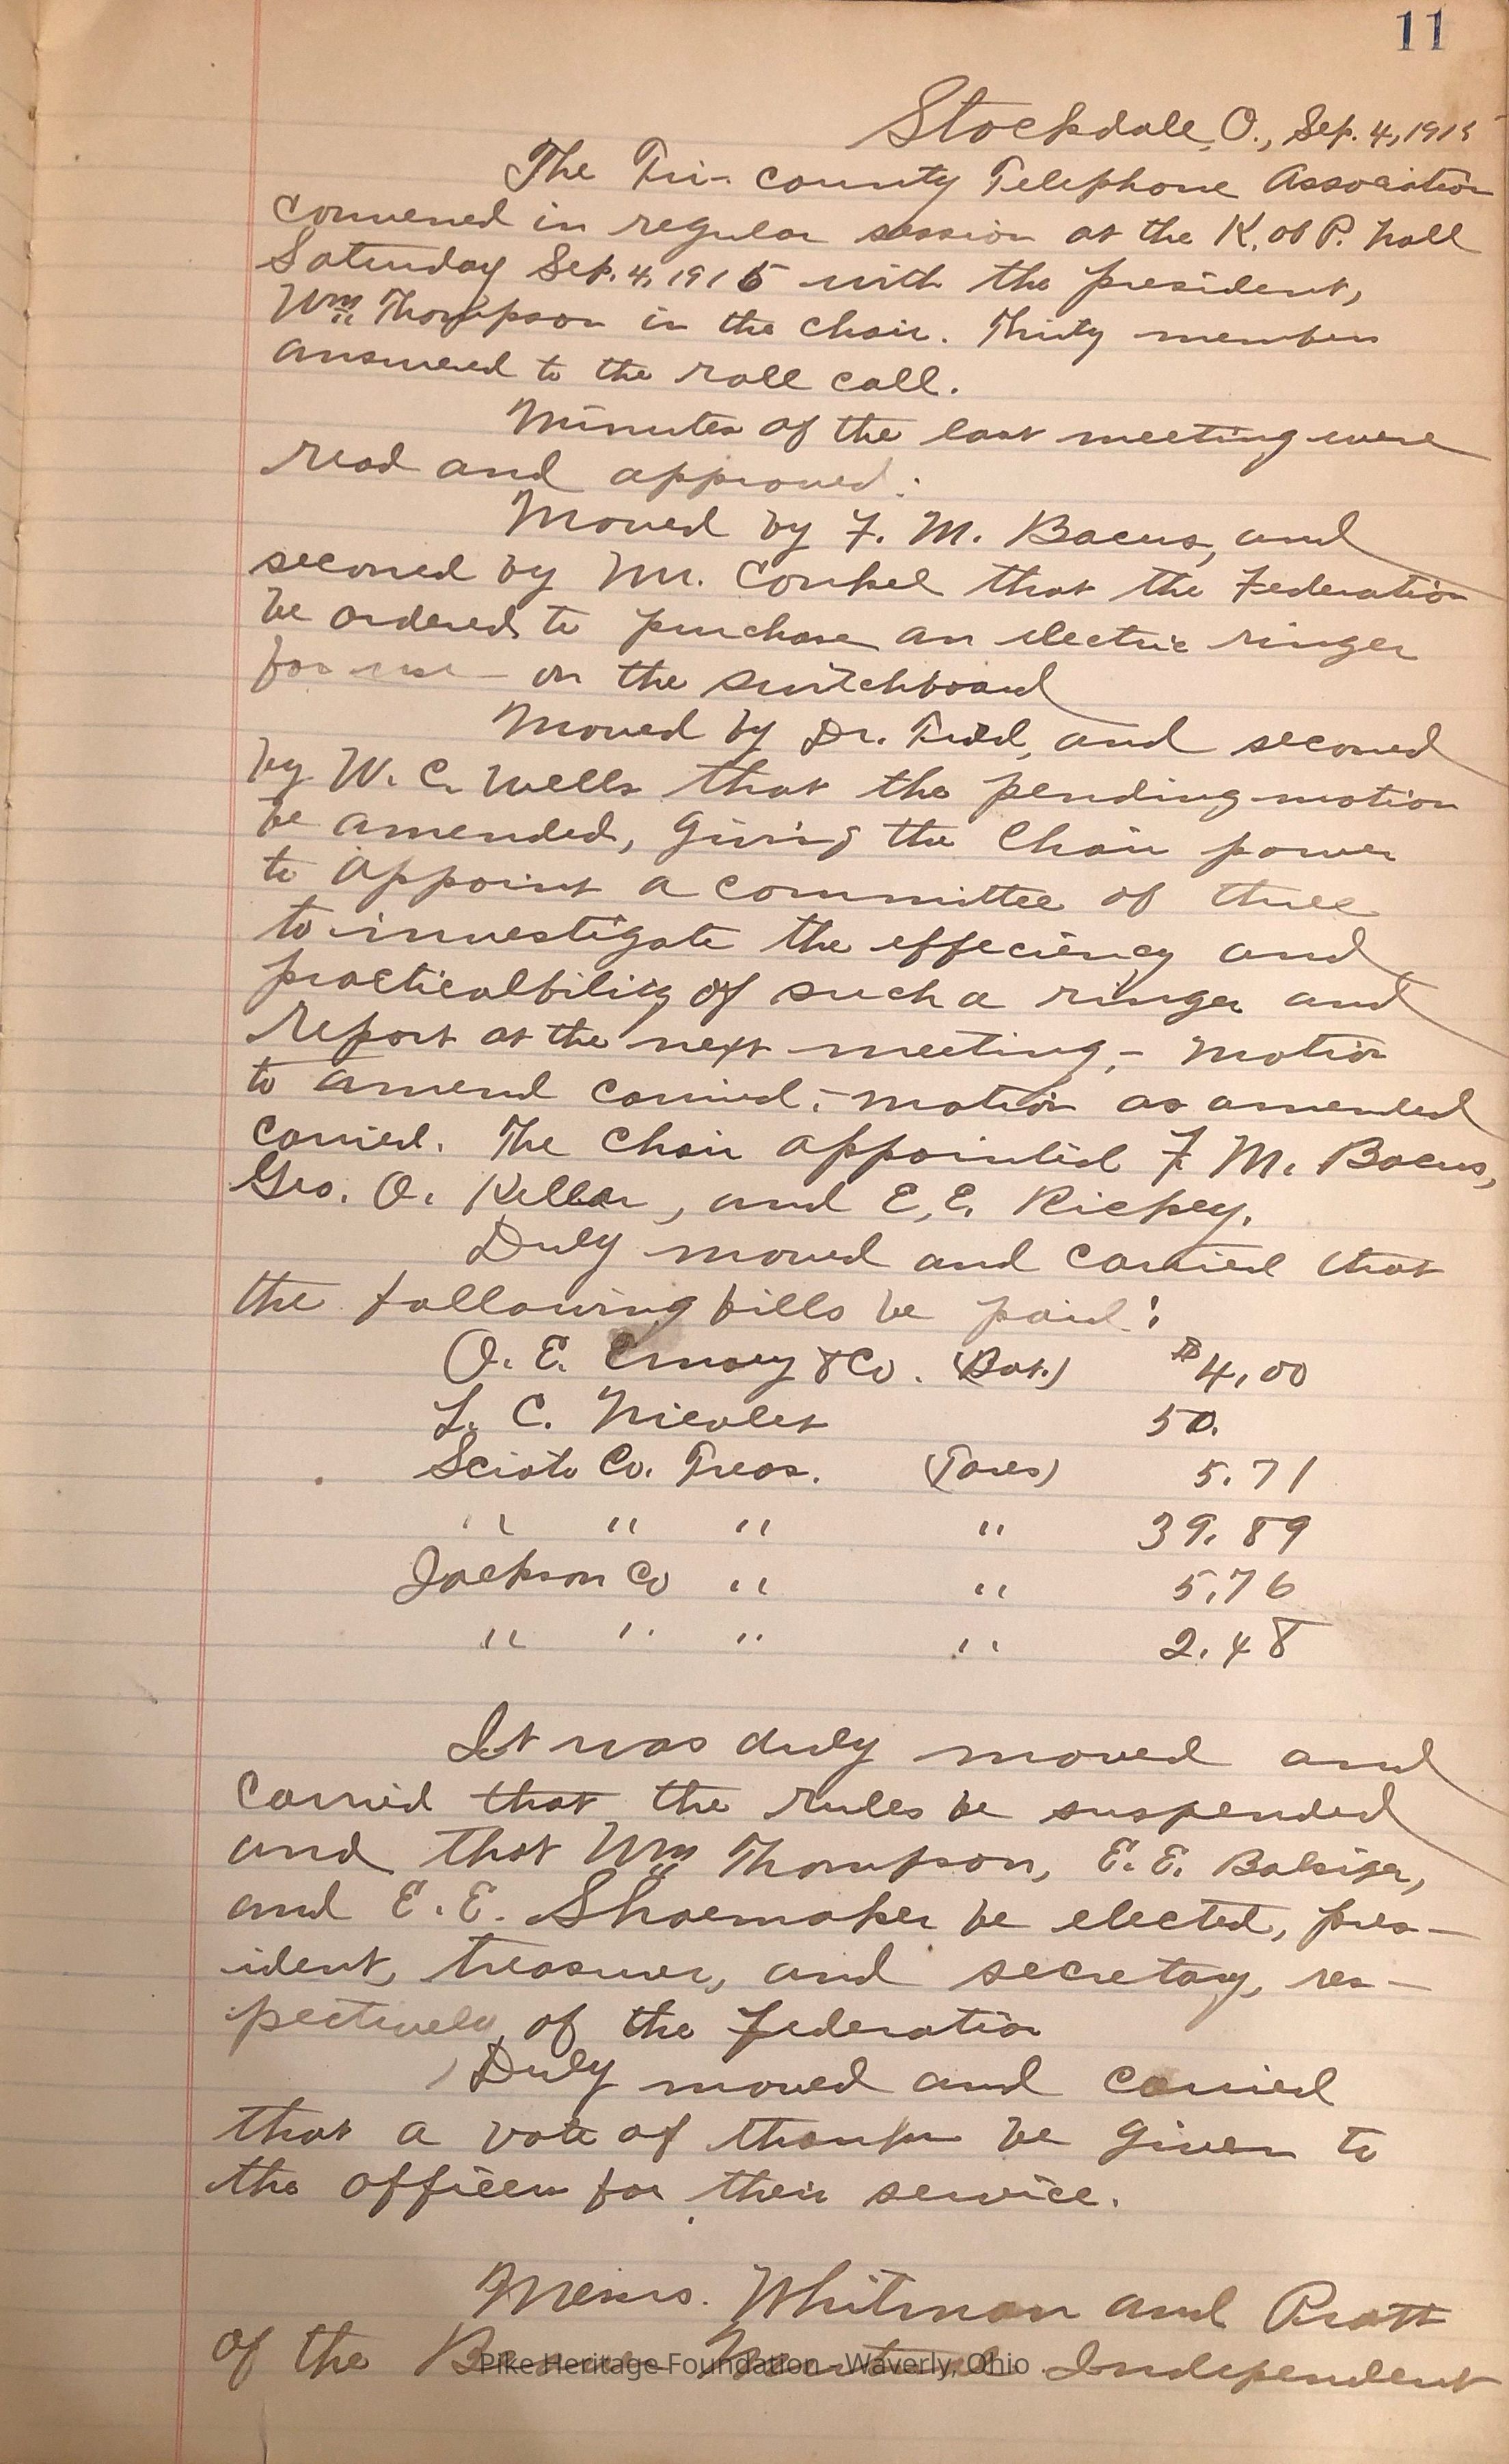 11
Stockdale, O., Sep. 4, 1915
The Tri-county Telephone Association
convened in regular session at the K. of P. hall
Saturday Sep. 4, 1915 with the president,
Wm Thompson in the chair. Thirty members
answered to the roll call.
Minutes of the last meeting were
read and approved.
Moved by F. M. Bacus, and
seconed by Mr. Conkel that the Federation
be ordered to purchase an electric ringer
for use on the switchboard
Moved by Dr. and seconed
by W. C. Wells that the pending motion
be amended, giving the Chair power
to appoint a committee of three
to investigate the effeciency and
practicalbility of such a ringer and
report at the next meeting, - motion
to amend carried; - motion as amended
carried. The chair appointed F. M. Bacus,
Geo. O. Kellar, and E. E. Richey.
Duly moved and carried that
the following bills be paid:
O. E. Emory & Co. (Bat.) $4.00
L. C. Nicolet 50.
Scioto Co. Treas. (Taxes) 5.71
" " " " 39.89
Jackson Co " " 5.76
" " " " 2.48
It was duly moved and
carried that the rules be suspended
and that Wm Thompson, E. E. Balsiger,
and E. E. Shoemaker be elected, pres-
ident, treasurer, and secretary, res-
pectively, of the Federation
Duly moved and carried
that a vote of thanks be given to
the officers for their service.
Messrs. Whitman and Pratt
of the Independent
Pike Heritage Foundation - Waverly, Ohio